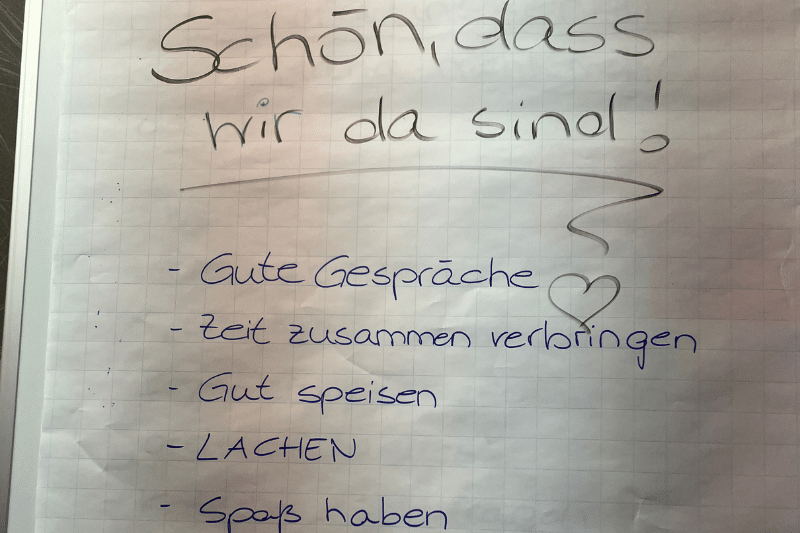 Schön, dass
wir da sind!
- Gute Gespräche
- Zeit zusammen verbringen
- Gut speisen
- LACHEN
- Spaß haben